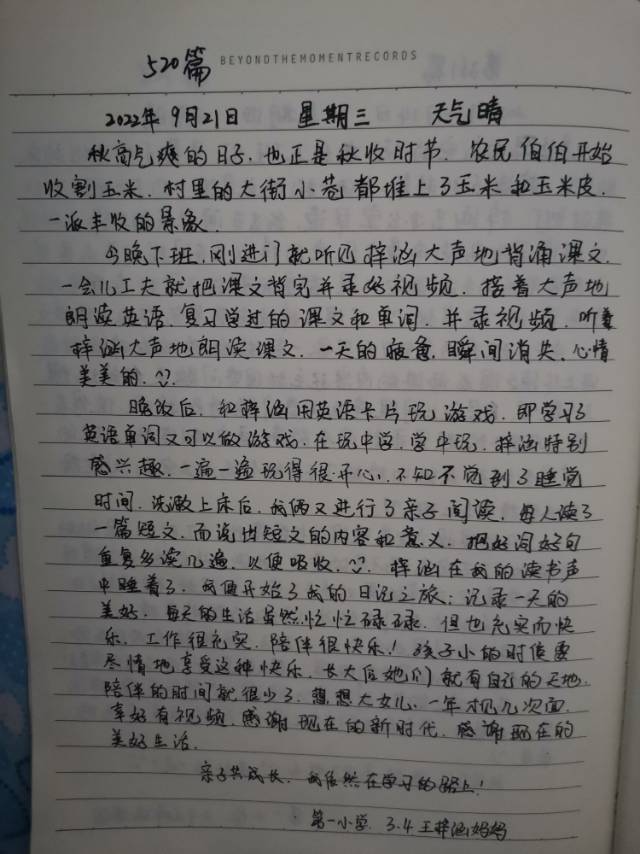 520篇 BEYONDTHEMOMENTRECORDS
2022年9月21日 星期三 天气晴
秋高气爽的日子,也正是秋收时节.农民伯伯开始
收割玉米.村里的大街小巷都堆上了玉米和玉米皮.
一派丰收的景象.
今晚下班,刚进门就听见梓涵大声地背诵课文.
一会儿工夫就把课文背完并录好视频.接着大声地
朗读英语.复习学过的课文和单词.并录视频.听着
梓涵大声地朗读课文.一天的疲惫,瞬间消失.心情
美美的.
晚饭后.和梓涵用英语卡片玩游戏.即学习了
英语单词又可以做游戏.在玩中学,学中玩.梓涵特别
感兴趣.一遍一遍玩得很开心.不知不觉到了睡觉
时间.洗漱上床后.我俩又进行了亲子阅读.每人读了
一篇短文.而说出短文的内容和意义.把好词好句
重复多读几遍.以便吸收.梓涵在我的读书声
中睡着了.我便开始了我的日记之旅:记录一天的
美好.每天的生活虽然忙忙碌碌.但也充实而快
乐.工作很充实.陪伴很快乐!孩子小的时候要
尽情地享受这种快乐.长大后她们就有自己的天地.
陪伴的时间就很少了.想想大女儿.一年才见几次面
幸好有视频.感谢现在的新时代.感谢现在的
美好生活.
亲子共成长.我依然在学习的路上!
第一小学.3.4王梓涵妈妈